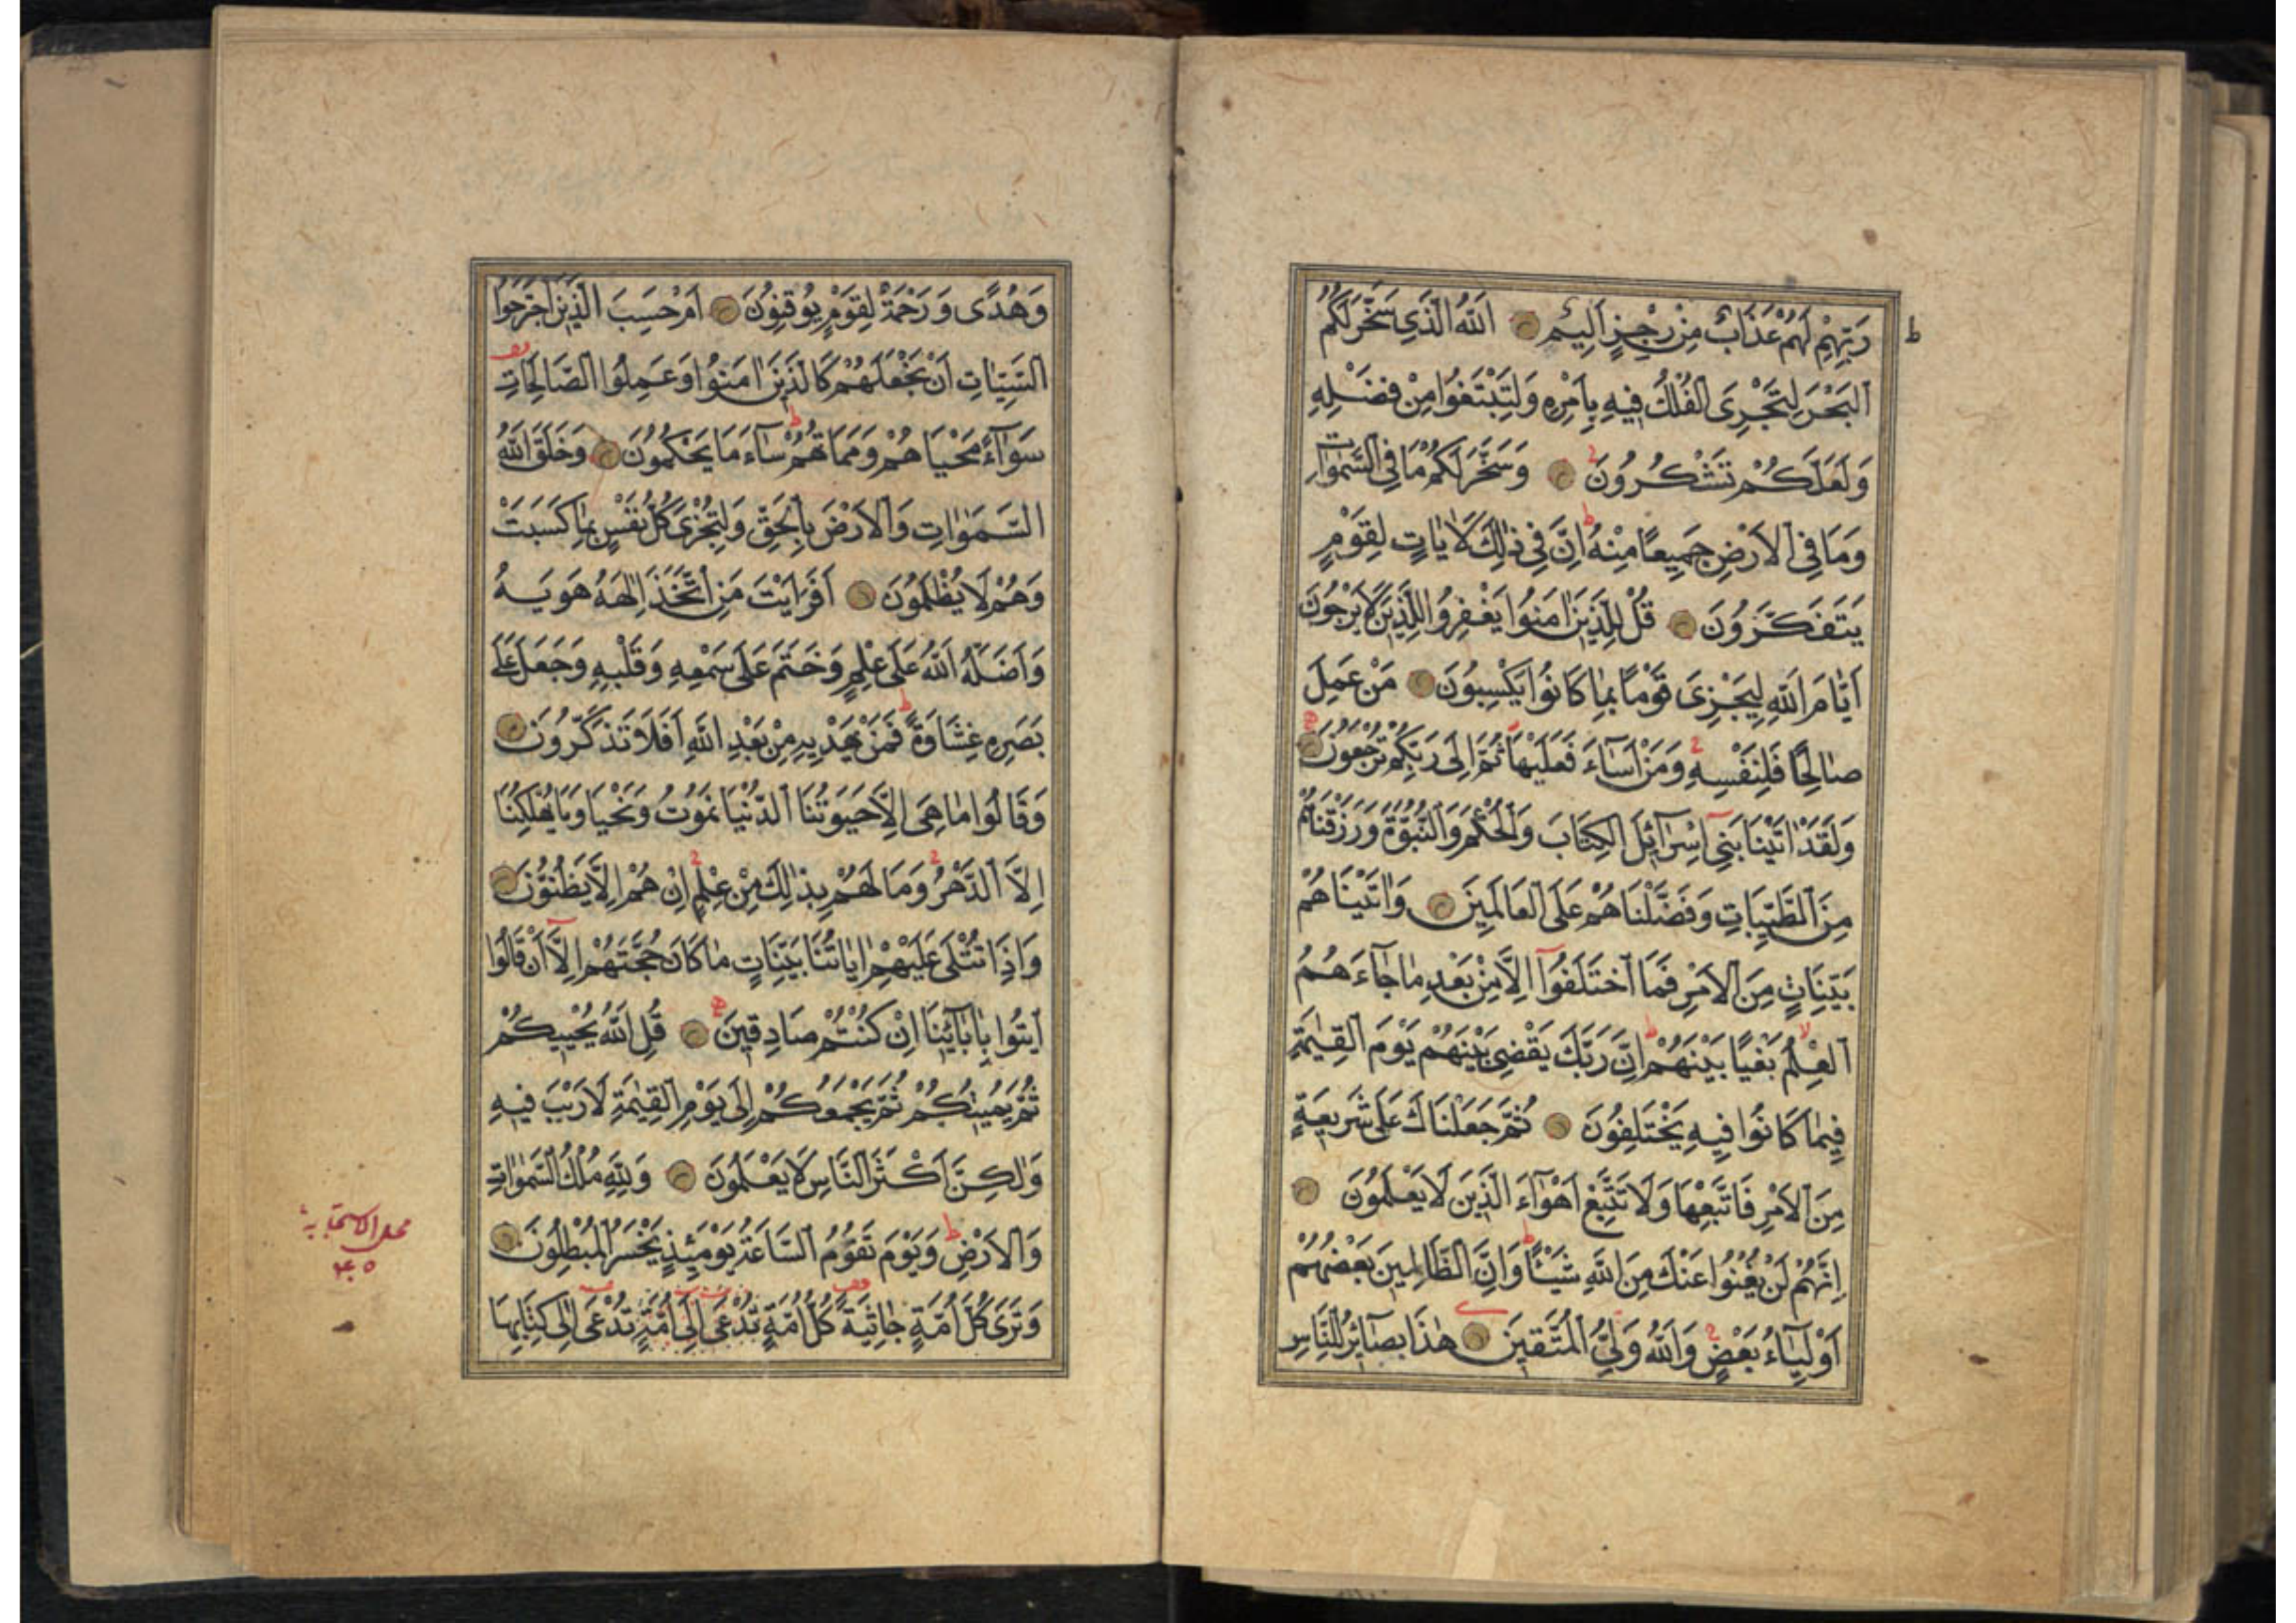 رَبِّهِمْ لَهُمْ عَذَابٌ مِنْ رِجْزٍ اَلِيمٍ اَللّٰهُ الَّذِي سَخَّرَ لَكُمُ
الْبَحْرَ لِتَجْرِىَ الْفُلْكُ فِيهِ بِاَمْرِهِ وَلِتَبْتَغُوا مِنْ فَضْلِهِ
وَلَعَلَّكُمْ تَشْكُرُونَ وَسَخَّرَ لَكُمْ مَا فِي السَّمٰوَاتِ
وَمَا فِي الْاَرْضِ جَمِيعًا مِنْهُ اِنَّ فِي ذٰلِكَ لَاٰيَاتٍ لِقَوْمٍ
يَتَفَكَّرُونَ قُلْ لِلَّذِينَ اٰمَنُوا يَغْفِرُوا لِلَّذِينَ لَا يَرْجُونَ
اَيَّامَ اللّٰهِ لِيَجْزِىَ قَوْمًا بِمَا كَانُوا يَكْسِبُونَ مَنْ عَمِلَ
صَالِحًا فَلِنَفْسِهِ وَمَنْ اَسَآءَ فَعَلَيْهَا ثُمَّ اِلٰى رَبِّكُمْ تُرْجَعُونَ
وَلَقَدْ اٰتَيْنَا بَنِي اِسْرَآئِلَ الْكِتَابَ وَالْحُكْمَ وَالنُّبُوَّةَ وَرَزَقْنَاهُمْ
مِنَ الطَّيِّبَاتِ وَفَضَّلْنَاهُمْ عَلَى الْعَالَمِينَ وَاٰتَيْنَاهُمْ
بَيِّنَاتٍ مِنَ الْاَمْرِ فَمَا اخْتَلَفُوا اِلَّا مِنْ بَعْدِ مَا جَآءَهُمُ
الْعِلْمُ بَغْيًا بَيْنَهُمْ اِنَّ رَبَّكَ يَقْضِي بَيْنَهُمْ يَوْمَ الْقِيٰمَةِ
فِيمَا كَانُوا فِيهِ يَخْتَلِفُونَ ثُمَّ جَعَلْنَاكَ عَلٰى شَرِيعَةٍ
مِنَ الْاَمْرِ فَاتَّبِعْهَا وَلَا تَتَّبِعْ اَهْوَآءَ الَّذِينَ لَا يَعْلَمُونَ
اِنَّهُمْ لَنْ يُغْنُوا عَنْكَ مِنَ اللّٰهِ شَيْئًا وَاِنَّ الظَّالِمِينَ بَعْضُهُمْ
اَوْلِيَآءُ بَعْضٍ وَاللّٰهُ وَلِيُّ الْمُتَّقِينَ هٰذَا بَصَآئِرُ لِلنَّاسِ
وَهُدًى وَرَحْمَةٌ لِقَوْمٍ يُوقِنُونَ اَمْ حَسِبَ الَّذِينَ اجْتَرَحُوا
السَّيِّئَاتِ اَنْ نَجْعَلَهُمْ كَالَّذِينَ اٰمَنُوا وَعَمِلُوا الصَّالِحَاتِ
سَوَآءً مَحْيَاهُمْ وَمَمَاتُهُمْ سَآءَ مَا يَحْكُمُونَ وَخَلَقَ اللّٰهُ
السَّمٰوَاتِ وَالْاَرْضَ بِالْحَقِّ وَلِتُجْزٰى كُلُّ نَفْسٍ بِمَا كَسَبَتْ
وَهُمْ لَا يُظْلَمُونَ اَفَرَاَيْتَ مَنِ اتَّخَذَ اِلٰهَهُ هَوٰيهُ
وَاَضَلَّهُ اللّٰهُ عَلٰى عِلْمٍ وَخَتَمَ عَلٰى سَمْعِهِ وَقَلْبِهِ وَجَعَلَ عَلٰى
بَصَرِهِ غِشَاوَةً فَمَنْ يَهْدِيهِ مِنْ بَعْدِ اللّٰهِ اَفَلَا تَذَكَّرُونَ
وَقَالُوا مَا هِىَ اِلَّا حَيَوتُنَا الدُّنْيَا نَمُوتُ وَنَحْيَا وَمَا يُهْلِكُنَا
اِلَّا الدَّهْرُ وَمَا لَهُمْ بِذٰلِكَ مِنْ عِلْمٍ اِنْ هُمْ اِلَّا يَظُنُّونَ
وَاِذَا تُتْلٰى عَلَيْهِمْ اٰيَاتُنَا بَيِّنَاتٍ مَا كَانَ حُجَّتَهُمْ اِلَّا اَنْ قَالُوا
ائْتُوا بِاٰبَآئِنَا اِنْ كُنْتُمْ صَادِقِينَ قُلِ اللّٰهُ يُحْيِيكُمْ
ثُمَّ يُمِيتُكُمْ ثُمَّ يَجْمَعُكُمْ اِلٰى يَوْمِ الْقِيٰمَةِ لَا رَيْبَ فِيهِ
وَلٰكِنَّ اَكْثَرَ النَّاسِ لَا يَعْلَمُونَ وَلِلّٰهِ مُلْكُ السَّمٰوَاتِ
وَالْاَرْضِ وَيَوْمَ تَقُومُ السَّاعَةُ يَوْمَئِذٍ يَخْسَرُ الْمُبْطِلُونَ
وَتَرٰى كُلَّ اُمَّةٍ جَاثِيَةً كُلُّ اُمَّةٍ تُدْعٰى اِلٰى اُمَّةٍ تُدْعٰى اِلٰى كِتَابِهَا